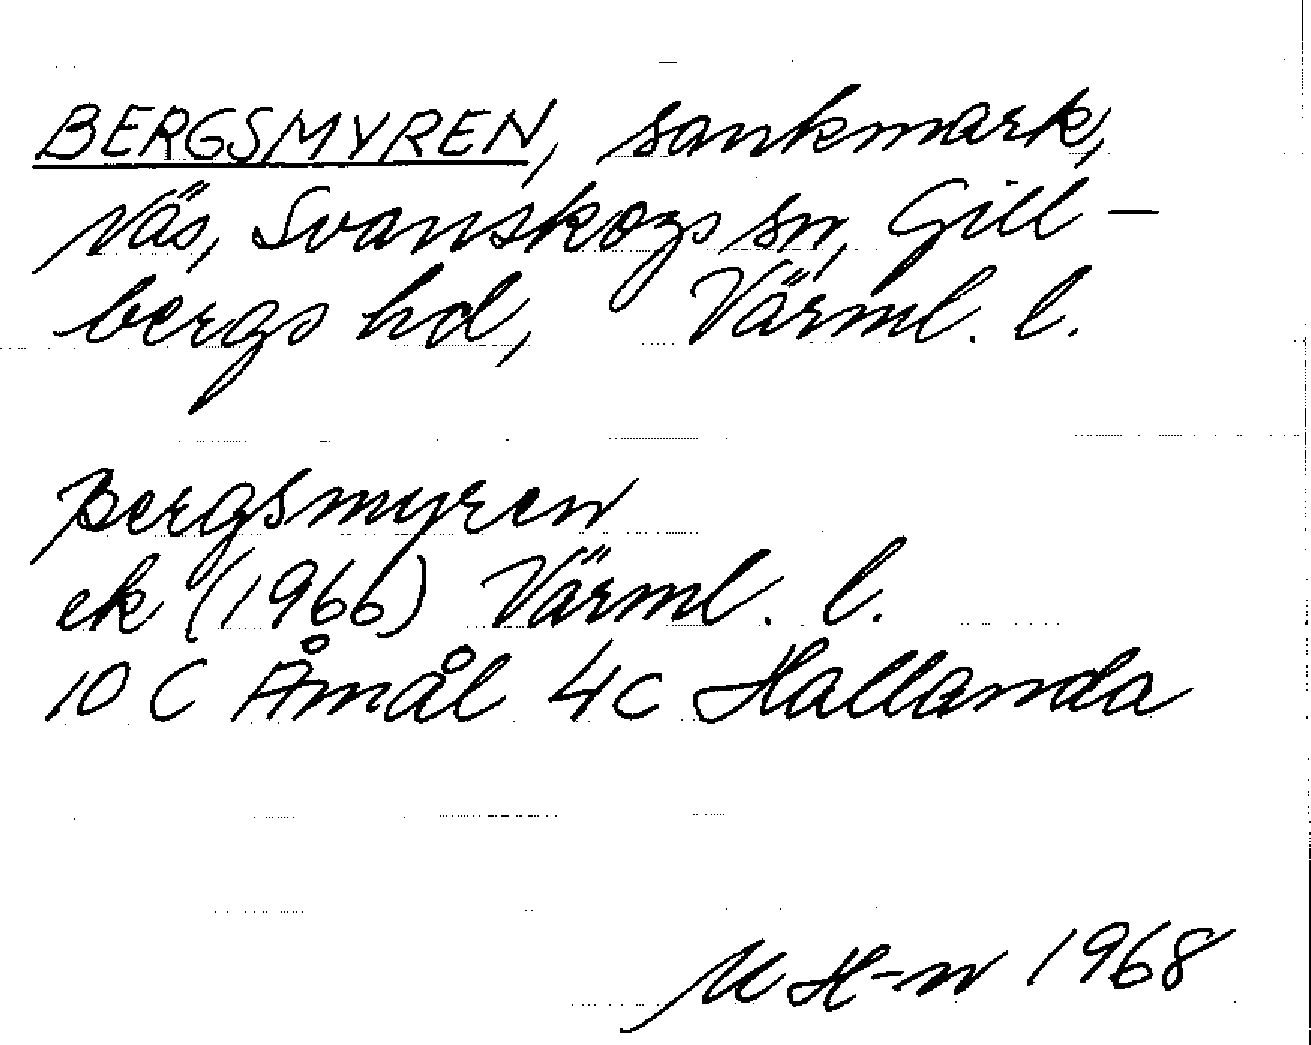 BERGSMYREN, sankmark,
Näs, Svanskogs sn, Gill-
bergs hd, Värml. l.
Bergsmyren
ek (1966) Värml. l.
10 C Åmål 4c Hallanda
M H-n 1968